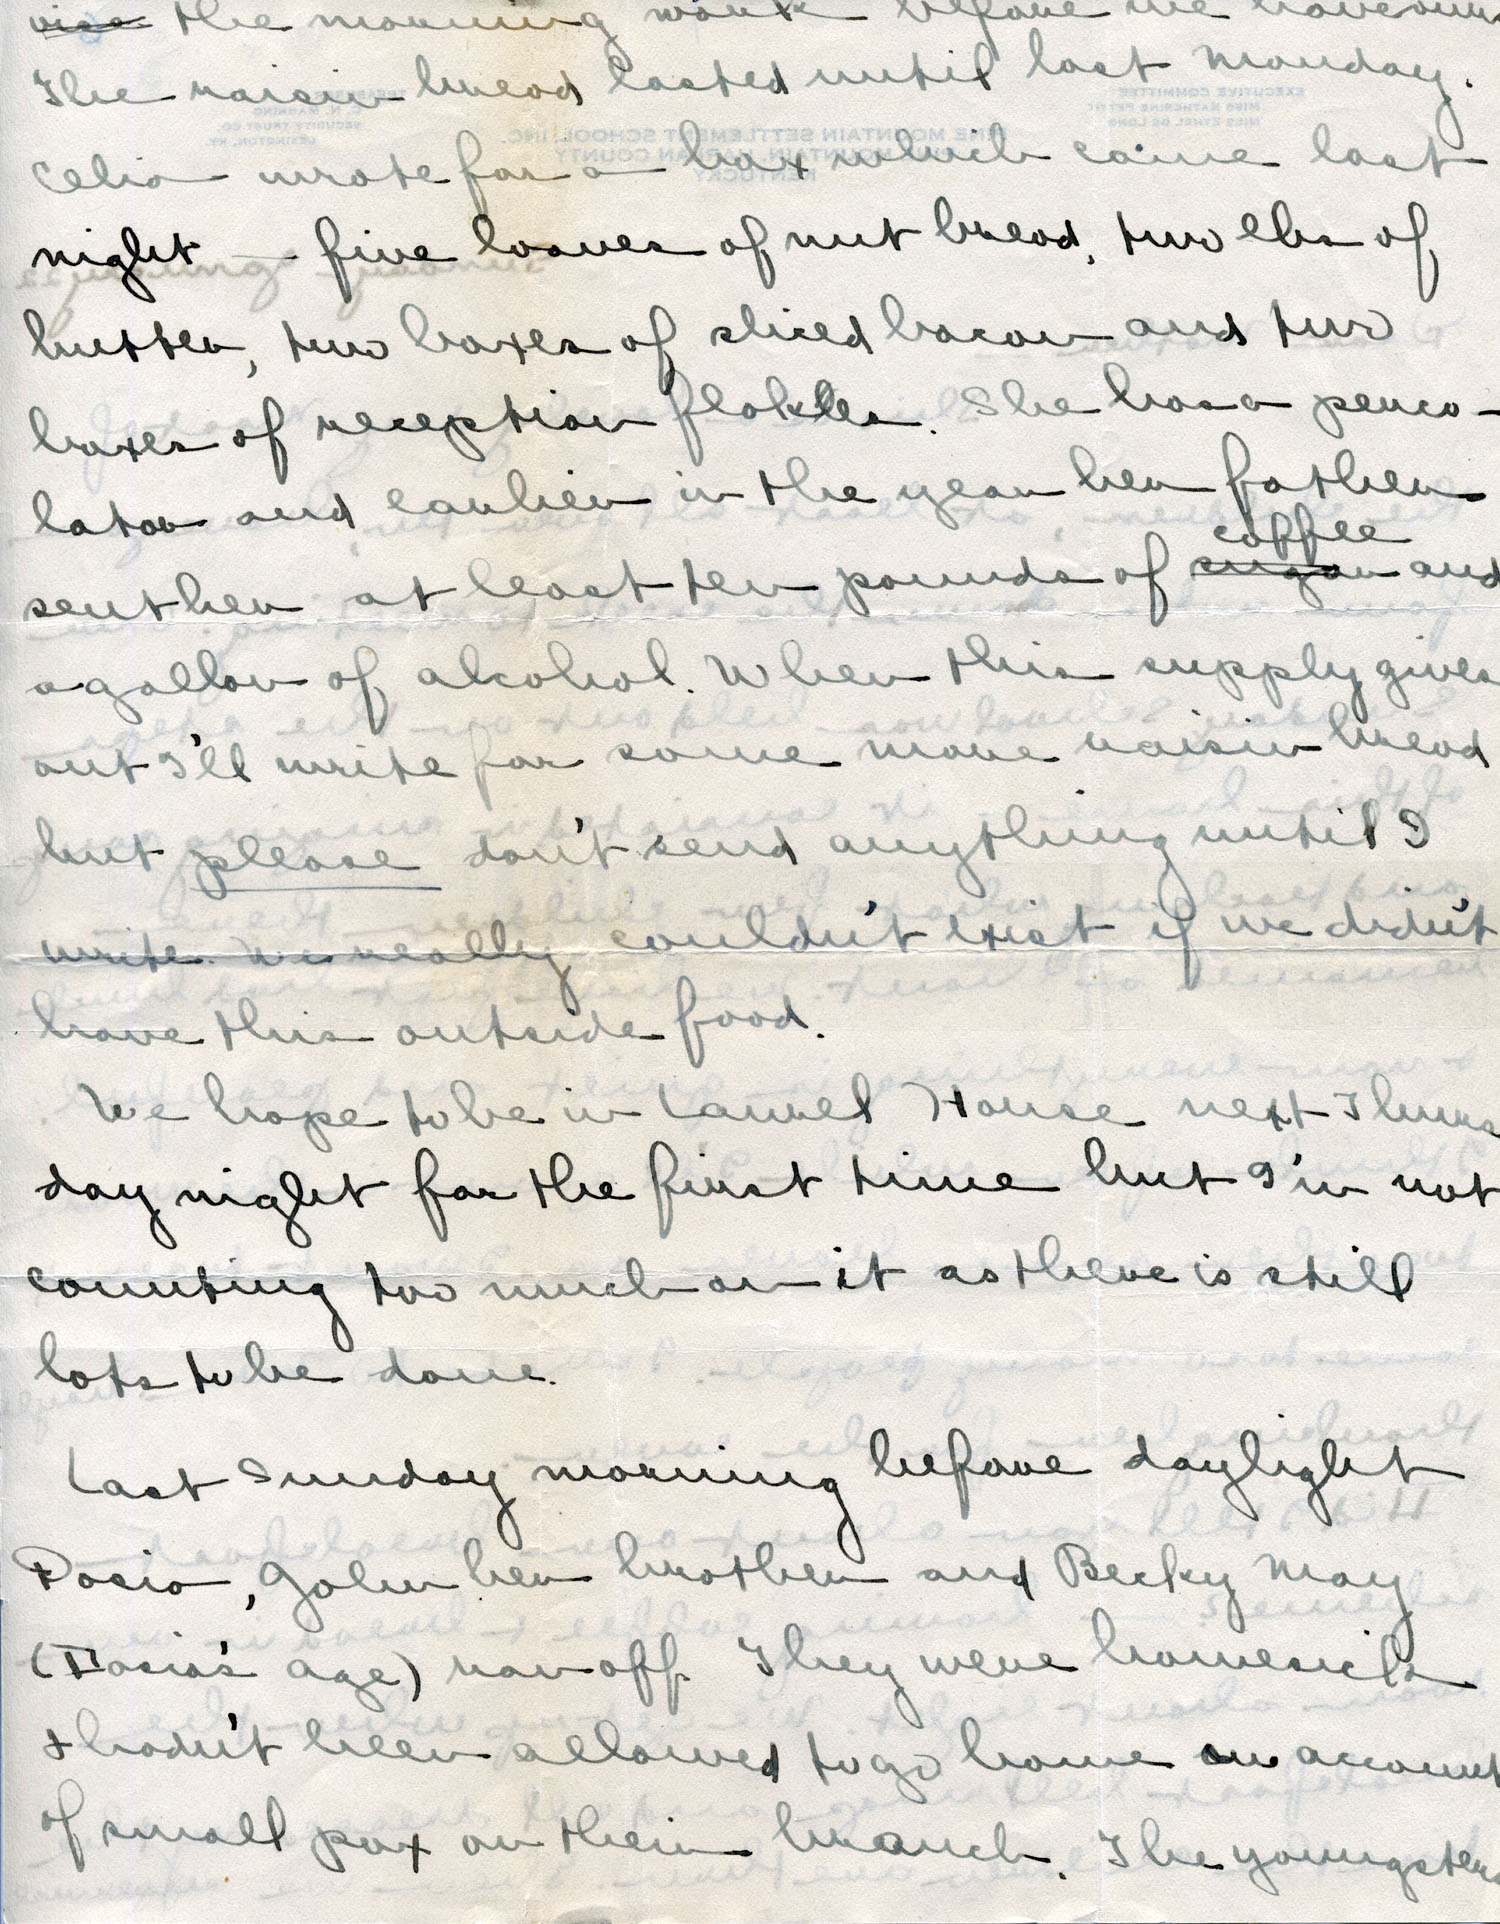 the morning work before we have our
The raisin bread lasted until last Monday.
Celia wrote for a box which came last
night — five loaves of nut bread, two lbs of
butter, two boxes of sliced bacon and two
boxes of reception flakes. She has a perco-
lator and earlier in the year her father
coffee
sent her at least ten pounds of sugar and
a gallon of alcohol. When this supply gives
out I'll write for some more raisin bread
but please don't send anything until I
write. We really couldn't exist if we didn't
have this outside food.
We hope to be in Laurel House next Thurs
day night for the first time but I'm not
counting too much on it as there is still
lots to be done.
Last Sunday morning before daylight
Dosia, John her brother and Becky May
(Dosia's age) ran off. They were homesick
& hadn't been allowed to go home on account
of small pox on their branch. The youngsters
EXECUTIVE COMMITTEE
MISS KATHERINE PETTIT
MISS ETHEL DE LONG
TREASURER
C. N. MANNING
SECURITY TRUST CO.
LEXINGTON, KY.
PINE MOUNTAIN SETTLEMENT SCHOOL, INC.
PINE MOUNTAIN, HARLAN COUNTY
KENTUCKY